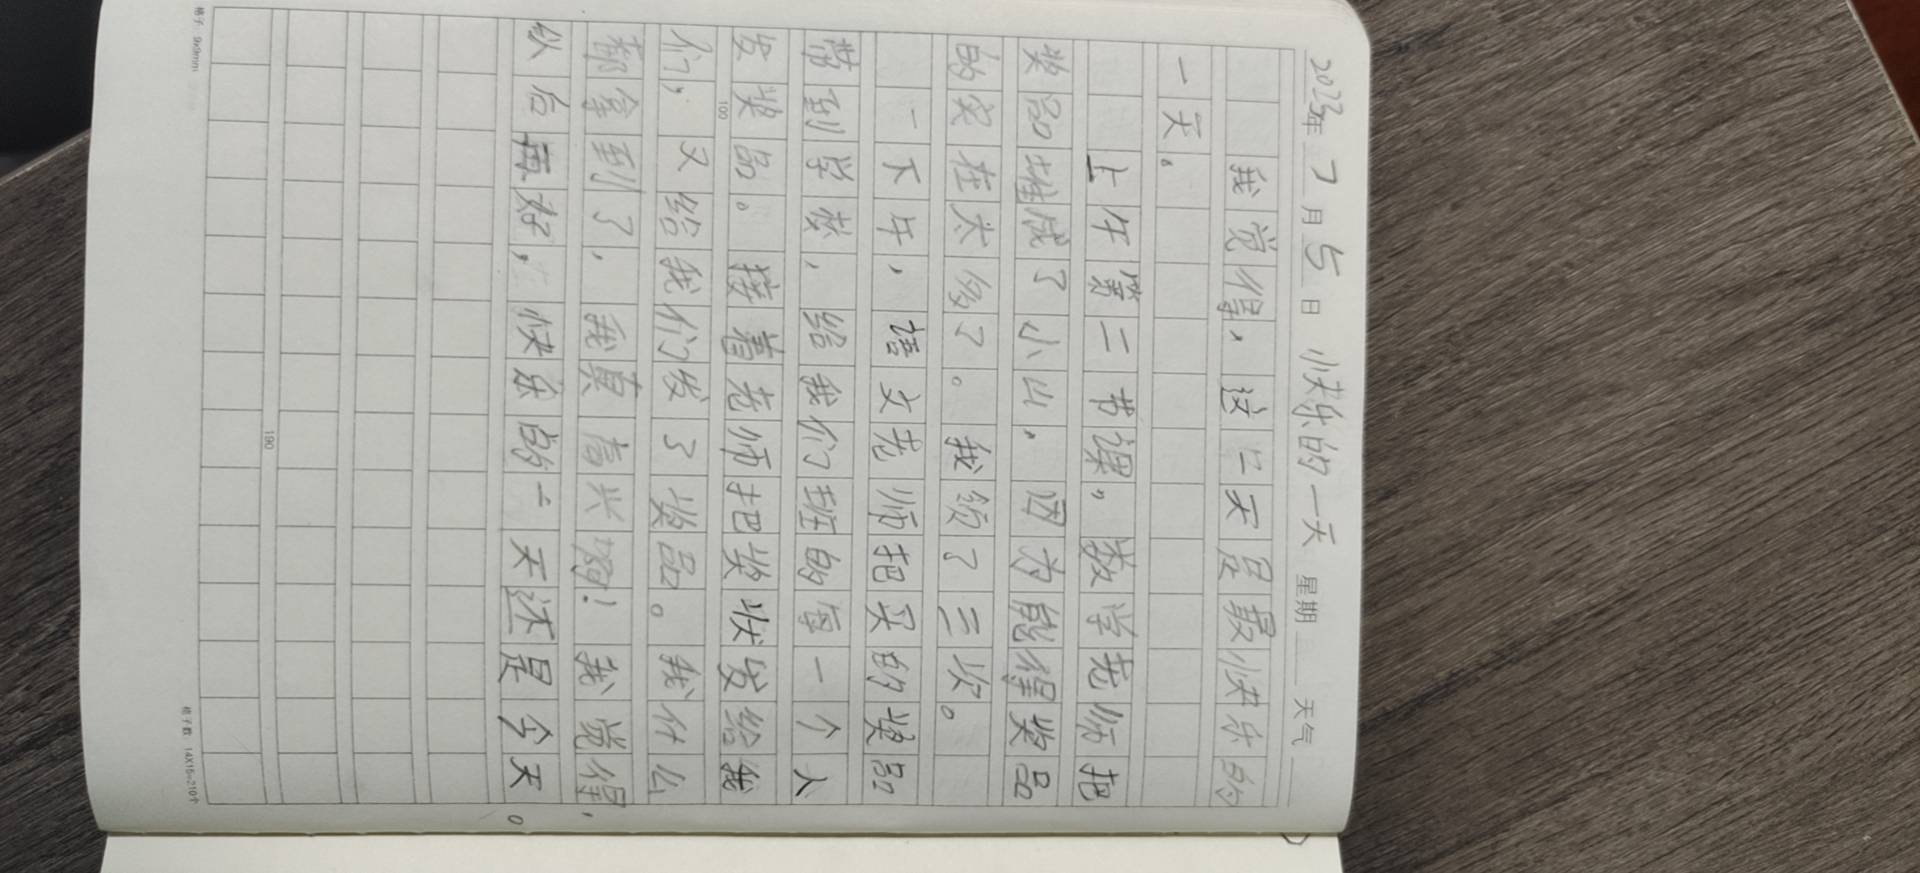 2023年7月5日 快乐的一天 星期三 天气
我觉得,这一天是最快乐的
一天。
上午第二节课,数学老师把
奖品堆成了小山,因为能得奖品
的实在太多了。我领了三次。
一下午,语文老师把买的奖品
带到学校,给我们班的每一个人
发奖品。接着老师把奖状发给我
们,又给我们发了奖品。我什么
都拿到了,我真高兴啊!我觉得,
以后再好,快乐的一天还是今天。
100
190
格子 9x9mm
格子数 14X15=210个